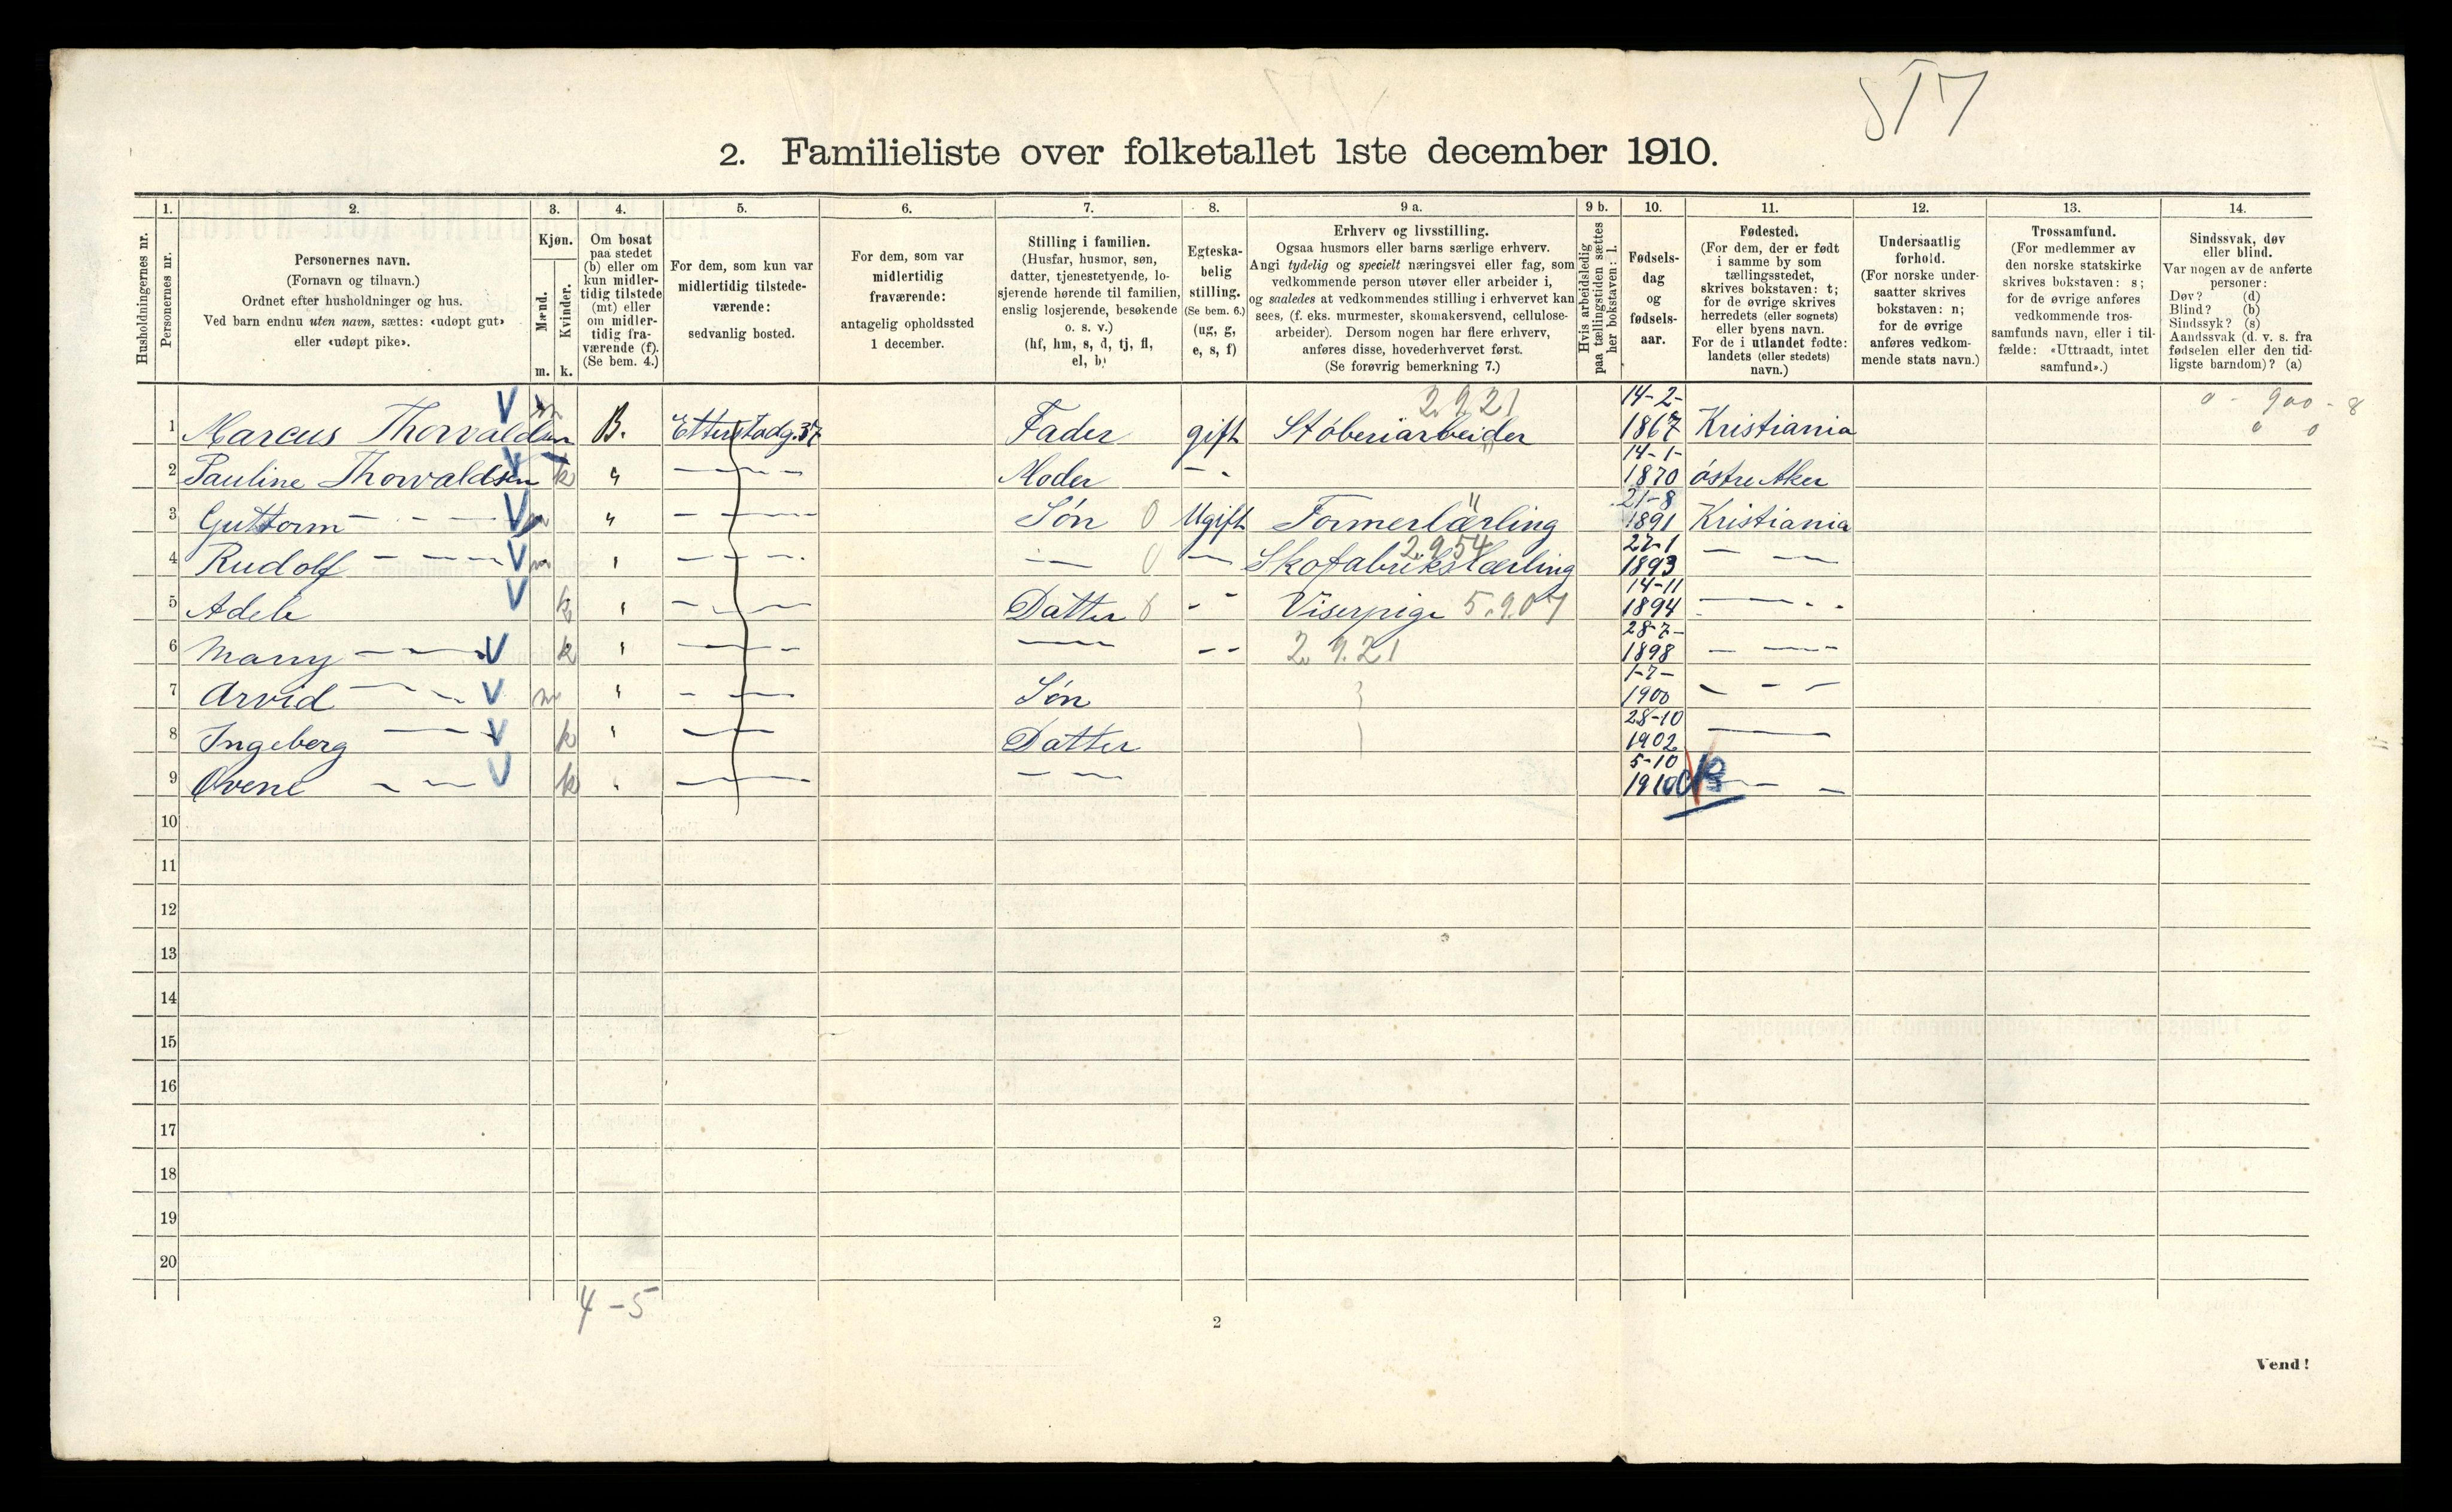 2. Familieliste over folketallet 1ste december 1910.
Husholdningernes nr.
1.
Personernes nr.
2.
Personernes navn.
(Fornavn og tilnavn.)
Ordnet efter husholdninger og hus.
Ved barn endnu uten navn, sættes: «udøpt gut»
eller «udøpt pike».
3.
Kjøn.
Mænd.
Kvinder.
m. k.
4.
Om bosat
paa stedet
(b) eller om
kun midler-
tidig tilstede
(mt) eller
om midler-
tidig fra-
værende (f).
(Se bem. 4.)
5.
For dem, som kun var
midlertidig tilstede-
værende:
sedvanlig bosted.
6.
For dem, som var
midlertidig
fraværende:
antagelig opholdssted
1 december.
7.
Stilling i familien.
(Husfar, husmor, søn,
datter, tjenestetyende, lo-
sjerende hørende til familien,
enslig losjerende, besøkende
o. s. v.)
(hf, hm, s, d, tj, fl,
el, b)
8.
Egteska-
belig
stilling.
(Se bem. 6.)
(ug, g,
e, s, f)
9 a.
Erhverv og livsstilling.
Ogsaa husmors eller barns særlige erhverv.
Angi tydelig og specielt næringsvei eller fag, som
vedkommende person utøver eller arbeider i,
og saaledes at vedkommendes stilling i erhvervet kan
sees, (f. eks. murmester, skomakersvend, cellulose-
arbeider). Dersom nogen har flere erhverv,
anføres disse, hovederhvervet først.
(Se forøvrig bemerkning 7.)
9 b.
Hvis arbeidsledig
paa tællingstiden sættes
her bokstaven: l.
10.
Fødsels-
dag
og
fødsels-
aar.
11.
Fødested.
(For dem, der er født
i samme by som
tællingsstedet,
skrives bokstaven: t;
for de øvrige skrives
herredets (eller sognets)
eller byens navn.
For de i utlandet fødte:
landets (eller stedets)
navn.)
12.
Undersaatlig
forhold.
(For norske under-
saatter skrives
bokstaven: n;
for de øvrige
anføres vedkom-
mende stats navn.)
13.
Trossamfund.
(For medlemmer av
den norske statskirke
skrives bokstaven: s;
for de øvrige anføres
vedkommende tros-
samfunds navn, eller i til-
fælde: «Uttraadt, intet
samfund».)
14.
Sindssvak, døv
eller blind.
Var nogen av de anførte
personer:
Døv? (d)
Blind? (b)
Sindssyk? (s)
Aandssvak (d. v. s. fra
fødselen eller den tid-
ligste barndom)? (a)
2.9.21 14-2- 0 - 900 - 8
1 Marcus Thorvaldsen V m B. Etterstadg. 37 Fader gift Stöberiarbeider 1867 Kristiania 0 0
14-1-
2 Pauline Thorvaldsen V k " — — Moder — - 1870 östre Aker
21-8
3 Guttorm — - — V m " — — Søn 0 Ugift Formerlærling " 1891 Kristiania
2.9.54 27-1
4 Rudolf — — V m " — — — 0 — Skofabrikslærling 1893 — —
14-11
5 Adele V k " — — Datter 0 - - Viserpige 5.9.07 1894 — - -
28-7-
6 Marry — — V k " — — — - - 2.9.21 1898 — —
1-7-
7 Arvid — - V m " — — Søn 1900 — - -
28-10
8 Ingeborg — V k " — — Datter 1902 —
5-10
9 — — V k " — — — 1910 — —
10
11
12
13
14
15
16
17
18
19
20
4 - 5
2
Vend!